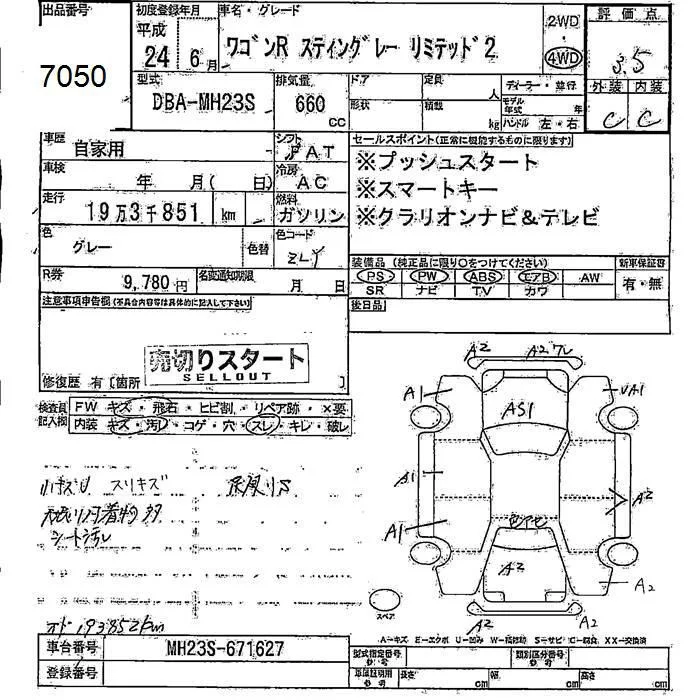 出品番号
7050
初度登録年月
平成
24 6月
車名・グレード
ワゴンR スティングレー リミテッド2
2WD
4WD
評価点
3.5
外装 内装
C C
型式
DBA-MH23S
排気量
660
CC
ドア
形状
定員
人
積載
kg
ディーラー・並行
モデル年式
年
ハンドル 左・右
車歴
自家用
シフト
FAT
車検
年 月( 日)
冷房
AC
走行
19万3千851 km
燃料
ガソリン
色
グレー
色替
色コード
ZLY
R券
9,780円
名変通知期限
月 日
セールスポイント(正常に機能するものに限ります)
※プッシュスタート
※スマートキー
※クラリオンナビ&テレビ
装備品(純正品に限り○をつけてください)
PS PW ABS エアB AW
SR ナビ TV カワ
新車保証書
有・無
後日品
注意事項申告欄(不具合内容等は具体的に記入して下さい)
売切りスタート
SELLOUT
修復歴 有〔箇所 〕
検査員記入欄
FW キズ・飛石・ヒビ割・リペア跡・×要
内装 キズ・汚レ・コゲ・穴・スレ・キレ・破レ
スリキズ
シート汚レ
オド 193852km
A2
A2
A1
UA1
AS1
A1
A1
A2
A2
A2
A2
A2
スペア
A-キズ E-エクボ U-凹み W-補修跡 S-サビ C-腐食 XX-交換済
車台番号
MH23S-671627
登録番号
型式指定番号
参考
類別区分番号
参考
車庫証明用
参考
長さ cm
幅 cm
高さ cm